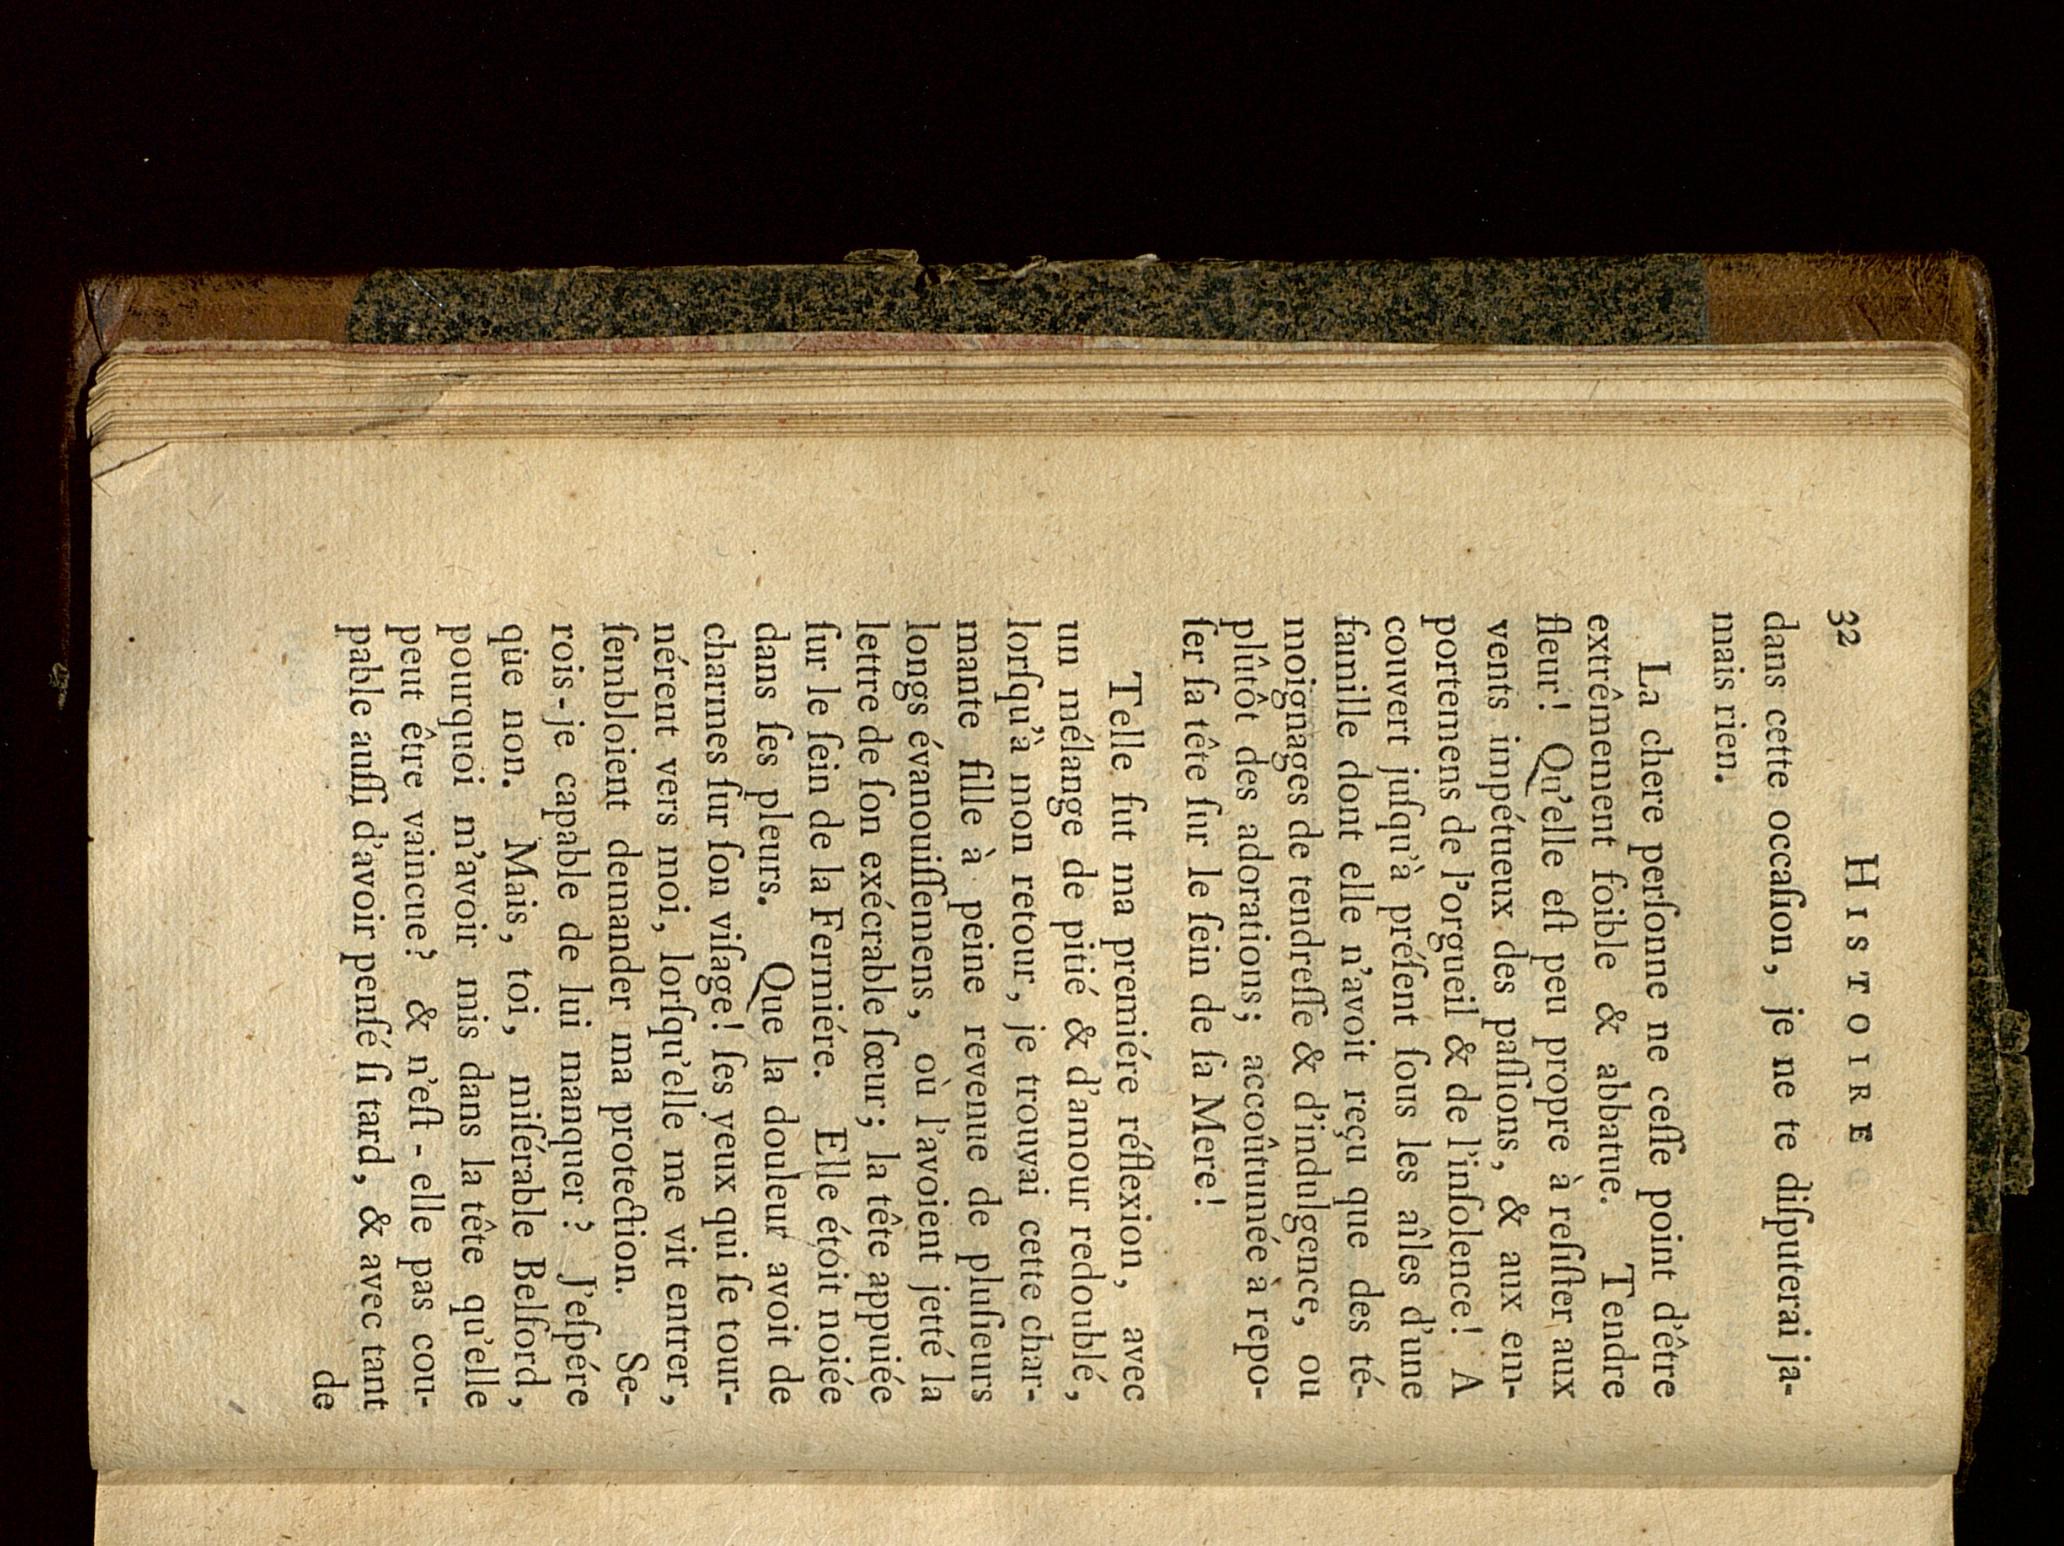 32 HISTOIRE
dans cette occaſion, je ne te diſputerai ja-
mais rien.
La chere perſonne ne ceſſe point d'être
extrêmement foible & abbatue. Tendre
fleur! Qu'elle eſt peu propre à reſiſter aux
vents impétueux des paſſions, & aux em-
portemens de l'orgueil & de l'inſolence! A
couvert juſqu'à préſent ſous les aîles d'une
famille dont elle n'avoit reçu que des té-
moignages de tendreſſe & d'indulgence, ou
plûtôt des adorations; accoûtumée à repo-
ſer ſa tête ſur le ſein de ſa Mere!
Telle fut ma premiére réflexion, avec
un mélange de pitié & d'amour redoublé,
lorſqu'à mon retour, je trouvai cette char-
mante fille à peine revenue de pluſieurs
longs évanouiſſemens, où l'avoient jetté la
lettre de ſon exécrable ſœur; la tête appuiée
ſur le ſein de la Fermiére. Elle étoit noiée
dans ſes pleurs. Que la douleur avoit de
charmes ſur ſon viſage! ſes yeux qui ſe tour-
nérent vers moi, lorſqu'elle me vit entrer,
ſembloient demander ma protection. Se-
rois-je capable de lui manquer? J'eſpére
que non. Mais, toi, miſérable Belford,
pourquoi m'avoir mis dans la tête qu'elle
peut être vaincue? & n'eſt-elle pas cou-
pable auſſi d'avoir penſé ſi tard, & avec tant
de